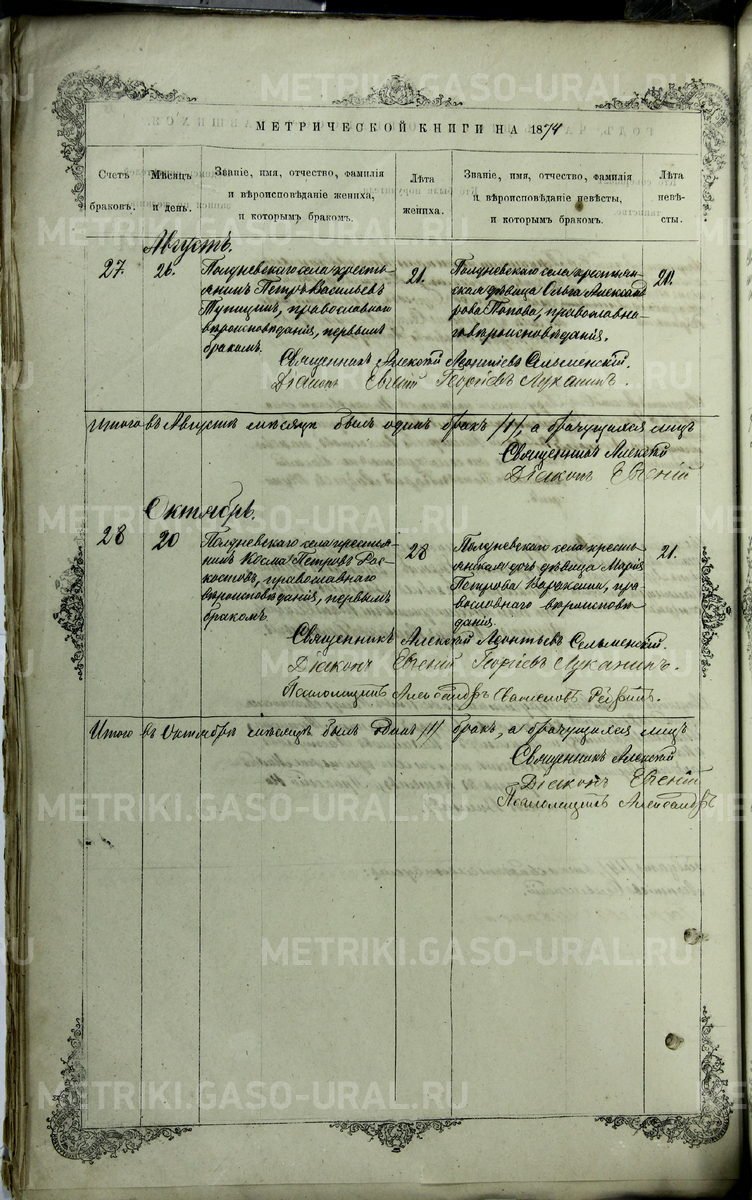 МЕТРИЧЕСКОЙ КНИГИ НА 1874
Счетъ браковъ.
Мѣсяцъ и день.
Званіе, имя, отчество, фамилія и вѣроисповѣданіе жениха, и которымъ бракомъ.
Лѣта жениха.
Званіе, имя, отчество, фамилія и вѣроисповѣданіе невѣсты, и которымъ бракомъ.
Лѣта невѣсты.
Августъ.
27.
26.
Полдневскаго села кресть-
янинъ Петръ Васильевъ
Тупицинъ, православнаго
вѣроисповѣданія, первымъ
бракомъ.
21.
Полдневскаго села крестьян-
ская дѣвица Ольга Александ
рова Попова, православна-
го вѣроисповѣданія.
Священникъ Алексій Леонтіевъ Сельменскій.
Діаконъ Евгеній Георгіевъ Луканинъ.
Итого въ Августѣ мѣсяцѣ былъ одинъ бракъ /1/, а брачущихся лицъ
Священникъ Алексій
Діаконъ Евгеній
Октябрь.
28
20
Полдневскаго села крестья-
нинъ Косма Петровъ
православнаго
вѣроисповѣданія, первымъ
бракомъ.
28
Полдневскаго села кресть-
янская дочь дѣвица Марія
Петрова пра-
вославнаго вѣроисповѣ
данія.
21.
Священникъ Алексій Леонтьевъ Сельменскій.
Діаконъ Евгеній Георгіевъ Луканинъ.
Псаломщикъ Александръ
Итого въ Октябрѣ мѣсяцѣ былъ одинъ /1/ бракъ, а брачущихся лицъ
Священникъ Алексій
Діаконъ Евгеній
Псаломщикъ Александръ
METRIKI.GASO-URAL.RU